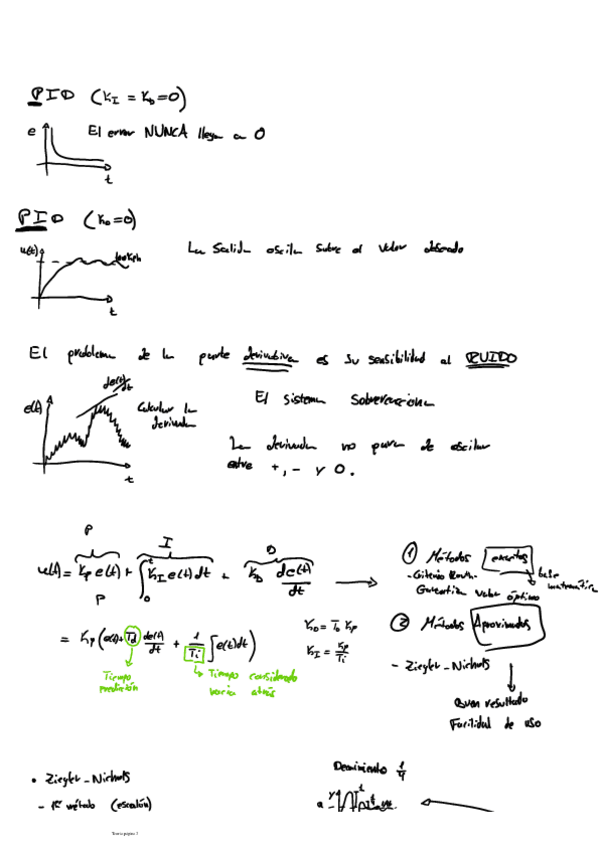 PID (K_I = K_D = 0)
e
El error NUNCA llega a 0
t
PID (K_D = 0)
u(t)
La salida oscila sobre el valor deseado
t
El problema de la parte derivativa es su sensibilidad al RUIDO
de(t)/dt
e(t)
Calcular la derivada
El sistema sobrerreacciona
La derivada no para de oscilar
entre +, - y 0.
t
P I D
u(t) = K_p e(t) + ∫_0^t K_I e(t) dt + K_D de(t)/dt
P
① Métodos exactos
- Criterio Routh-
base matemática
Garantiza valor óptimo
= K_p (e(t) + T_d de(t)/dt + 1/T_i ∫ e(t) dt)
K_D = T_D K_p
K_I = K_p/T_i
② Métodos Aproximados
Tiempo predicción
Tiempo considerado
hacia atrás
- Ziegler-Nichols
Buen resultado
Facilidad de uso
• Ziegler-Nichols
Decaimiento 1/4
- 1er método (escalón)
Teoría página 1